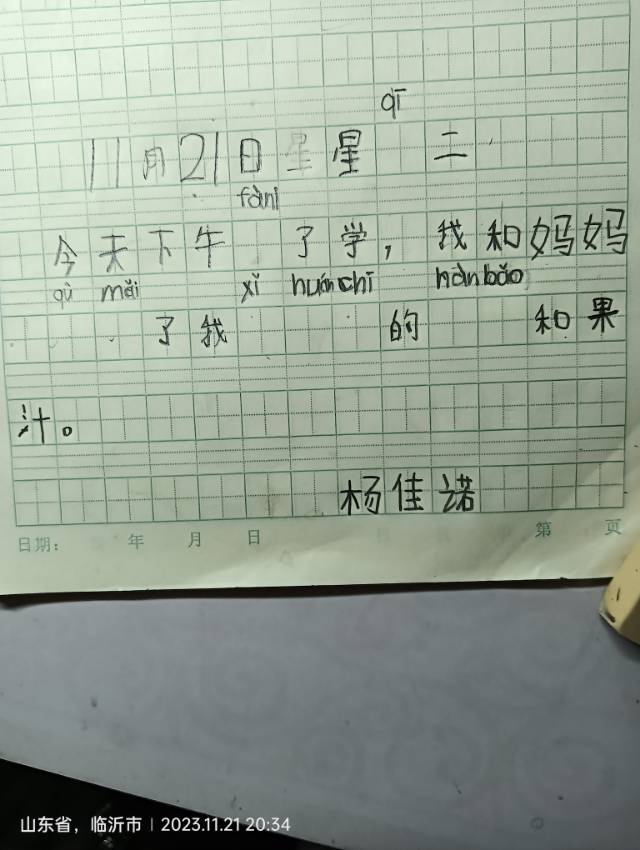 qī
11月21日星星 二
fànɡ
今天下午 了学，我和妈妈
qù mǎi xǐ huán chī hàn bǎo
了我 的 和果
汁。
杨佳诺
日期： 年 月 日 第 页
山东省，临沂市 | 2023.11.21 20:34